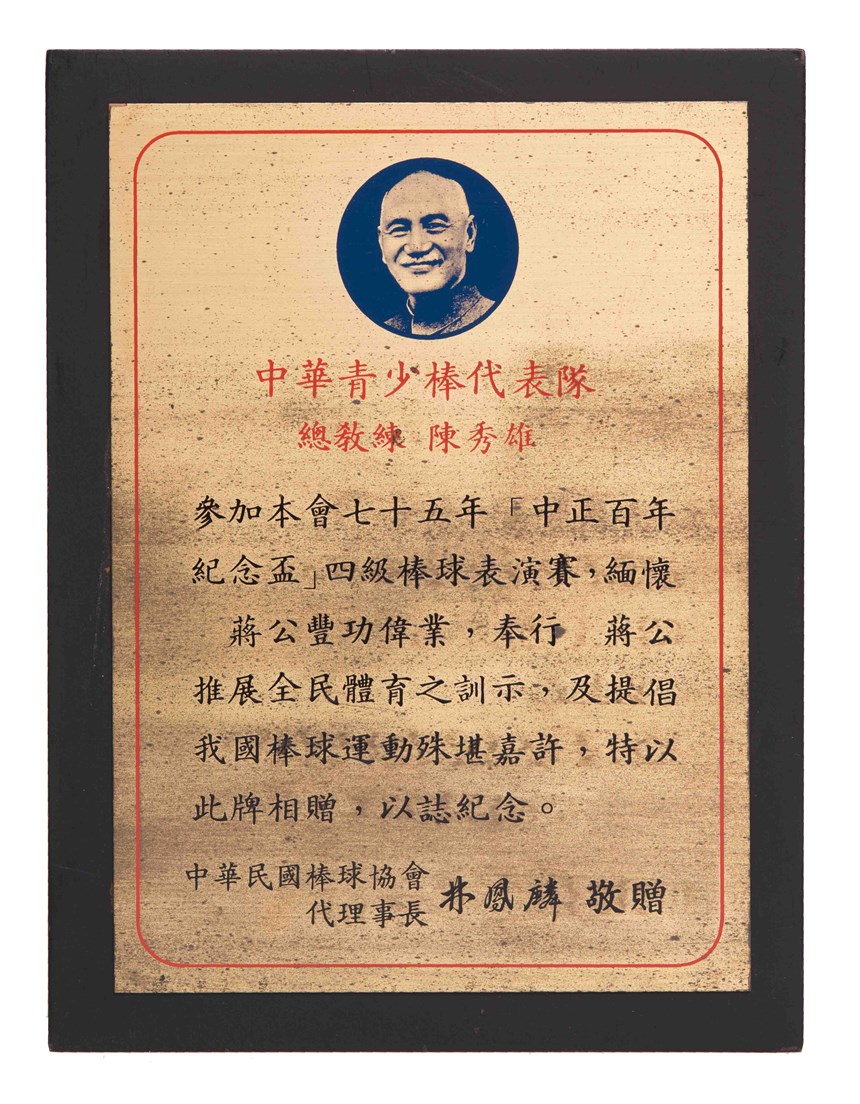 中華青少棒代表隊
總教練 陳秀雄
參加本會七十五年「中正百年
紀念盃」四級棒球表演賽，緬懷
蔣公豐功偉業，奉行　蔣公
推展全民體育之訓示，及提倡
我國棒球運動殊堪嘉許，特以
此牌相贈，以誌紀念。
中華民國棒球協會
代理事長 林鳳麟 敬贈